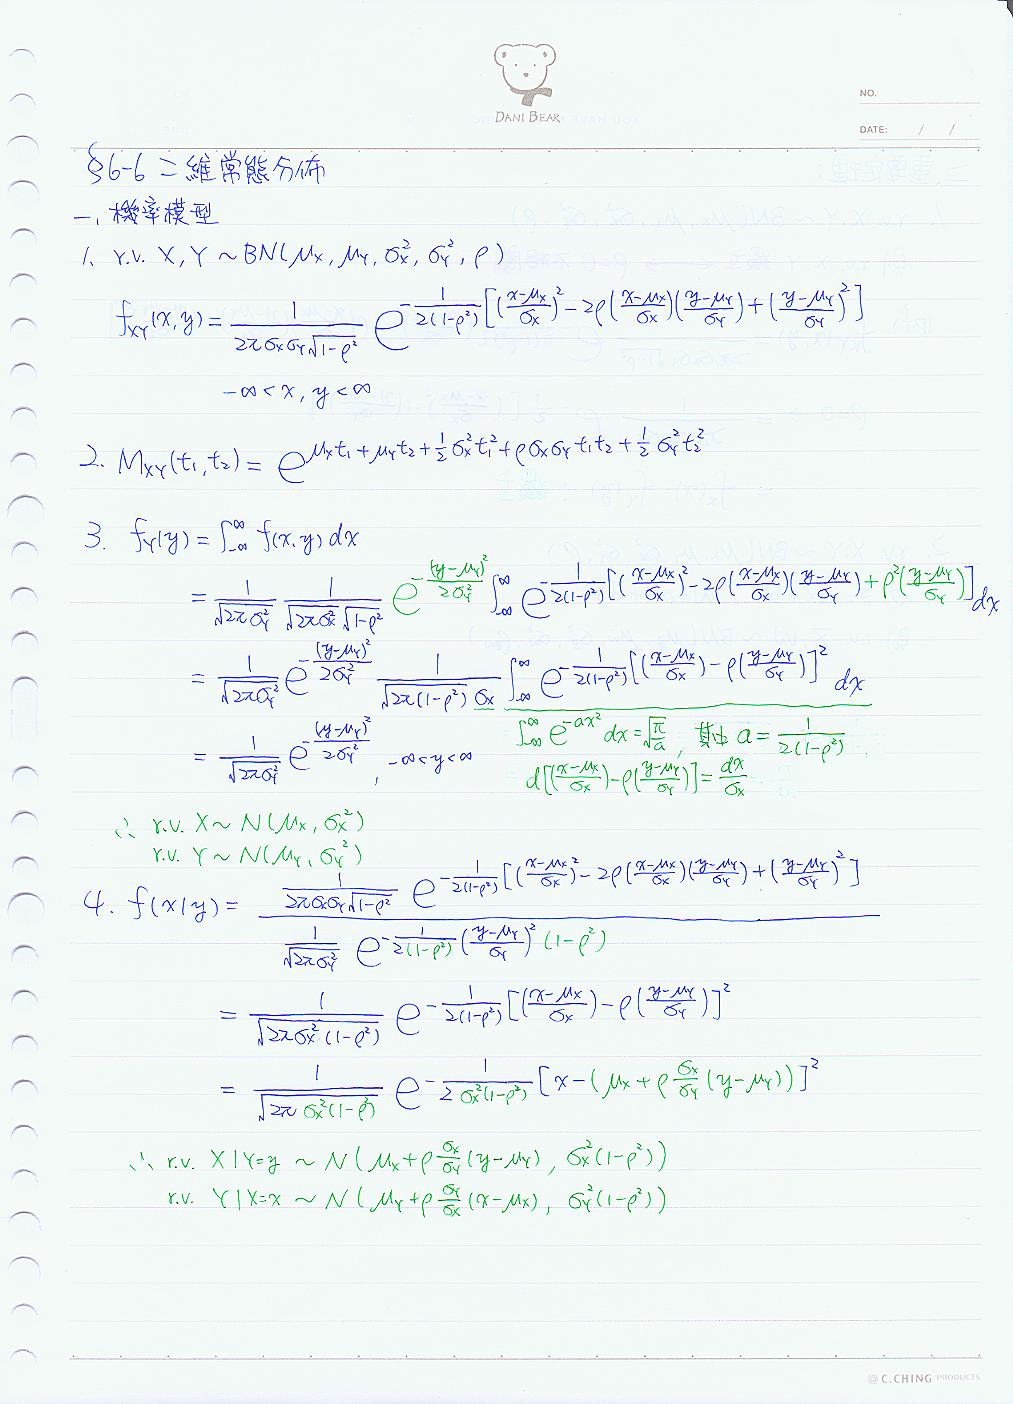 DANI BEAR
NO.
DATE: / /
§6-6 二維常態分佈
一、機率模型
1. r.v. X, Y ~ BN(μx, μY, σx², σY², ρ)
fXY(x, y) = 1/(2πσxσY√(1-ρ²)) e^(-1/(2(1-ρ²))[((x-μx)/σx)² - 2ρ((x-μx)/σx)((y-μY)/σY) + ((y-μY)/σY)²])
-∞ < x, y < ∞
2. MXY(t₁, t₂) = e^(μxt₁ + μYt₂ + ½σx²t₁² + ρσxσYt₁t₂ + ½σY²t₂²)
3. fY(y) = ∫_-∞^∞ f(x,y) dx
= 1/√(2πσY²) 1/(√(2πσx²)√(1-ρ²)) e^(-(y-μY)²/(2σY²)) ∫_-∞^∞ e^(-1/(2(1-ρ²))[((x-μx)/σx)² - 2ρ((x-μx)/σx)((y-μY)/σY) + ρ²((y-μY)/σY)²]) dx
= 1/√(2πσY²) e^(-(y-μY)²/(2σY²)) 1/(√(2π(1-ρ²)) σx) ∫_-∞^∞ e^(-1/(2(1-ρ²))[((x-μx)/σx) - ρ((y-μY)/σY)]²) dx
= 1/√(2πσY²) e^(-(y-μY)²/(2σY²)), -∞<y<∞
∫_-∞^∞ e^(-ax²) dx = √(π/a), 其中 a = 1/(2(1-ρ²))
d[((x-μx)/σx) - ρ((y-μY)/σY)] = dx/σx
∴ r.v. X ~ N(μx, σx²)
r.v. Y ~ N(μY, σY²)
4. f(x|y) = 1/(2πσxσY√(1-ρ²)) e^(-1/(2(1-ρ²))[((x-μx)/σx)² - 2ρ((x-μx)/σx)((y-μY)/σY) + ((y-μY)/σY)²])
1/√(2πσY²) e^(-1/(2(1-ρ²))((y-μY)/σY)²(1-ρ²))
= 1/√(2πσx²(1-ρ²)) e^(-1/(2(1-ρ²))[((x-μx)/σx) - ρ((y-μY)/σY)]²)
= 1/√(2πσx²(1-ρ²)) e^(-1/(2σx²(1-ρ²))[x-(μx+ρ(σx/σY)(y-μY))]²)
∴ r.v. X|Y=y ~ N(μx+ρ(σx/σY)(y-μY), σx²(1-ρ²))
r.v. Y|X=x ~ N(μY+ρ(σY/σx)(x-μx), σY²(1-ρ²))
C.CHING PRODUCTS